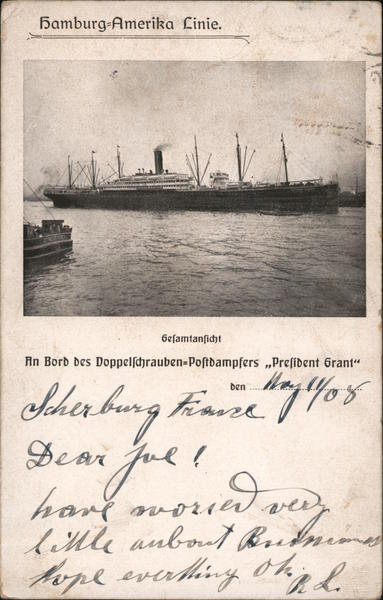 Hamburg=Amerika Linie.
Gesamtansicht
An Bord des Doppelschrauben=Postdampfers „President Grant“
den May 11/08
Scherburg France
Dear Joe!
have woried very
little anbout
hope everthing Ok.
R L.